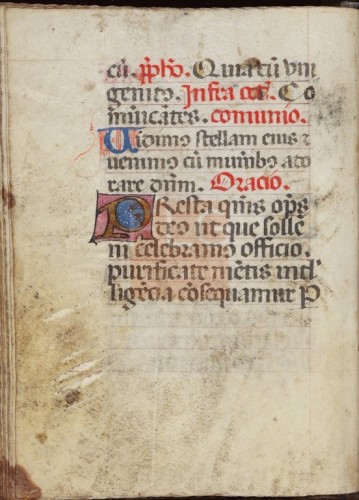 cū. p̄pho. Quia cū vni
genito. Infra oct̄. Co
mūicātes. comunio.
Vidimꝰ stellam eiꝰ ⁊
venimꝰ cū munib̄o ado
rare dn̄m. Oracio.
PResta q̄ms op̄s
deo ut que solle
ni celebramꝰ officio.
purificate mētis intl̓
ligēcia cōsequamur P